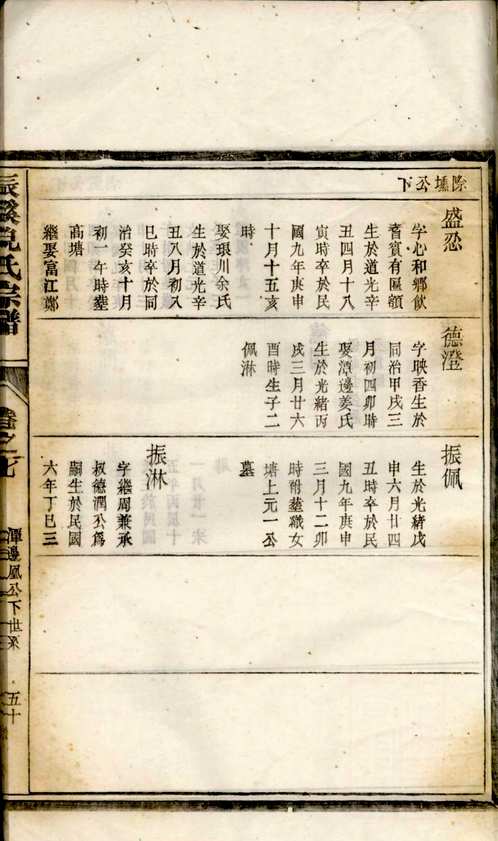 除壎公下
盛忍
字心和鄉飲
耆賓有匾額
生於道光辛
丑四月十八
寅時卒於民
國九年庚申
十月十五亥
時
娶琅川余氏
生於道光辛
丑八月初八
巳時卒於同
治癸亥十月
初一午時塟
高塘
繼娶富江鄭
德澄
字映香生於
同治甲戌三
月初四卯時
娶潭邊姜氏
生於光緒丙
戌三月廿六
酉時生子二
佩淋
振佩
生於光緒戊
申六月廿四
丑時卒於民
國九年庚申
三月十二卯
時附塟職女
塘上元一公
墓
振淋
字繼周兼承
叔德潤公爲
嗣生於民國
六年丁巳三
氏宗譜
卷之七
潭邊風公下世系
五十